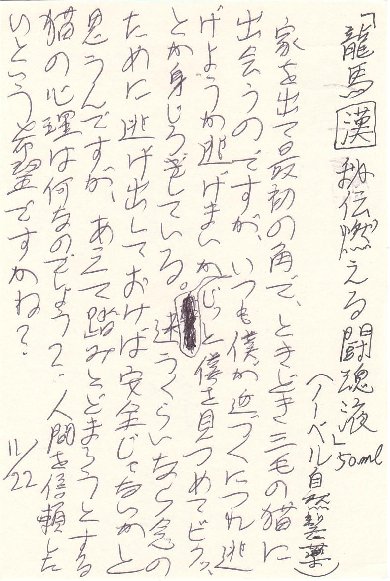 「龍馬漢秘伝燃える闘魂液」50ml
(ノーベル自然製薬)
家を出て最初の角で、ときどき三毛の猫に
出会うのですが、いつも僕が近づくにつれ逃
げようか逃げまいかじっと僕を見つめてビクッ
とか身じろぎしている。迷うくらいなら念の
ために逃げ出しておけば安全じゃないかと
思うんですが、あえて踏みとどまろうとする
猫の心理は何なのでしょう?人間を信頼した
いという希望ですかね?
11/22